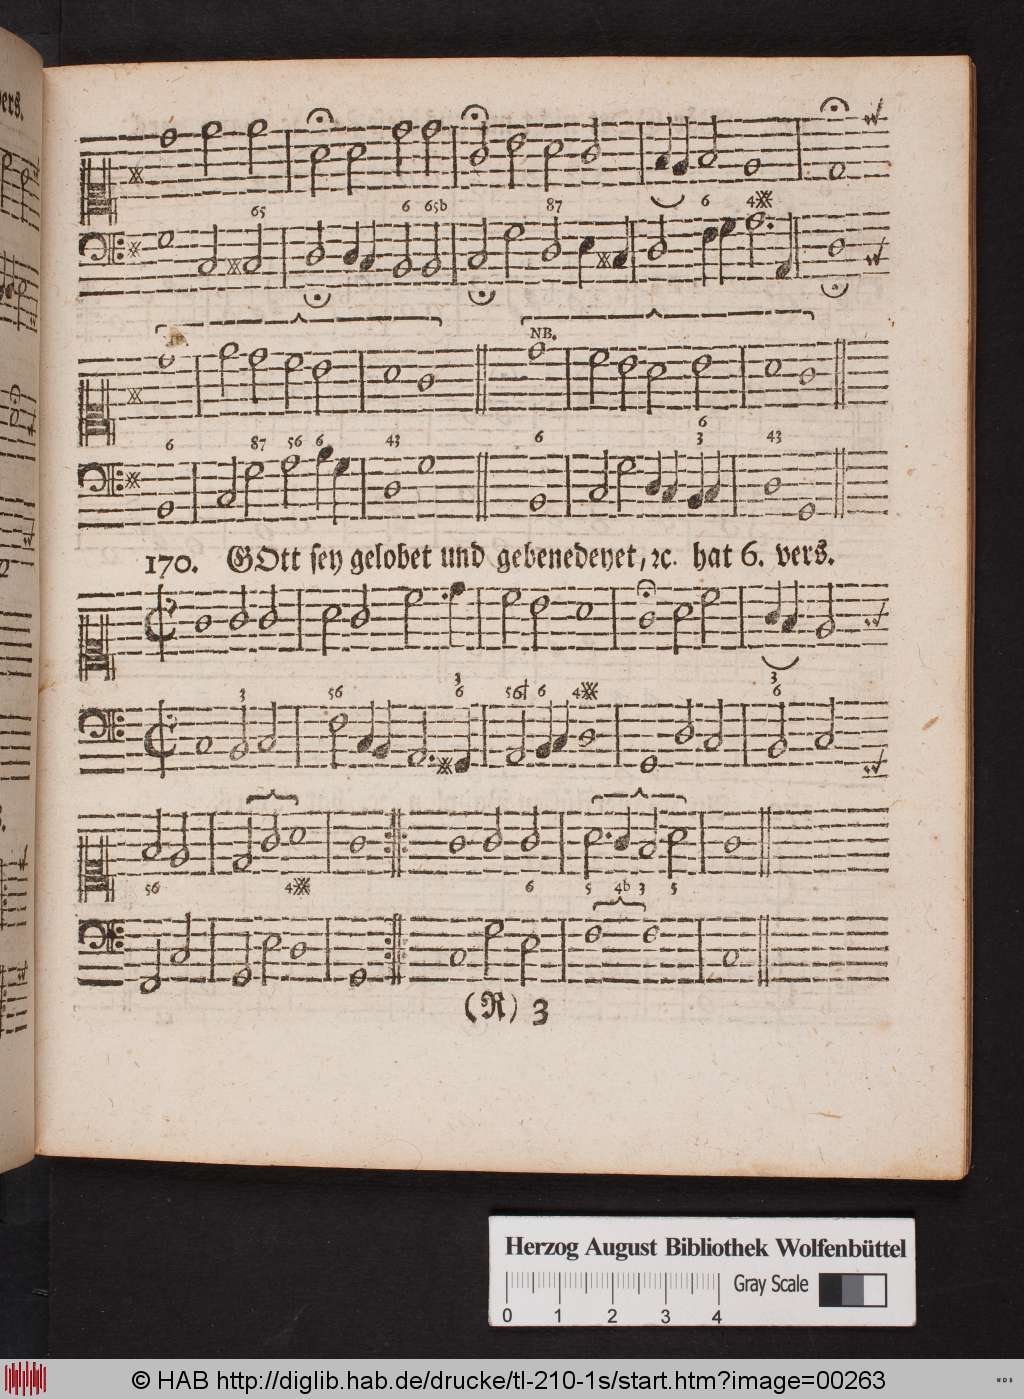 vers.
65 6 65b 87 6 4
NB.
6 87 56 6 43 6 6 43
3
170. GOtt sey gelobet und gebenedeyet, ꝛc. hat 6. vers.
3 56 3 56 6 4 3
6 6
56 4 6 5 4b 3 5
(R) 3
Herzog August Bibliothek Wolfenbüttel
Gray Scale
0 1 2 3 4
© HAB http://diglib.hab.de/drucke/tl-210-1s/start.htm?image=00263